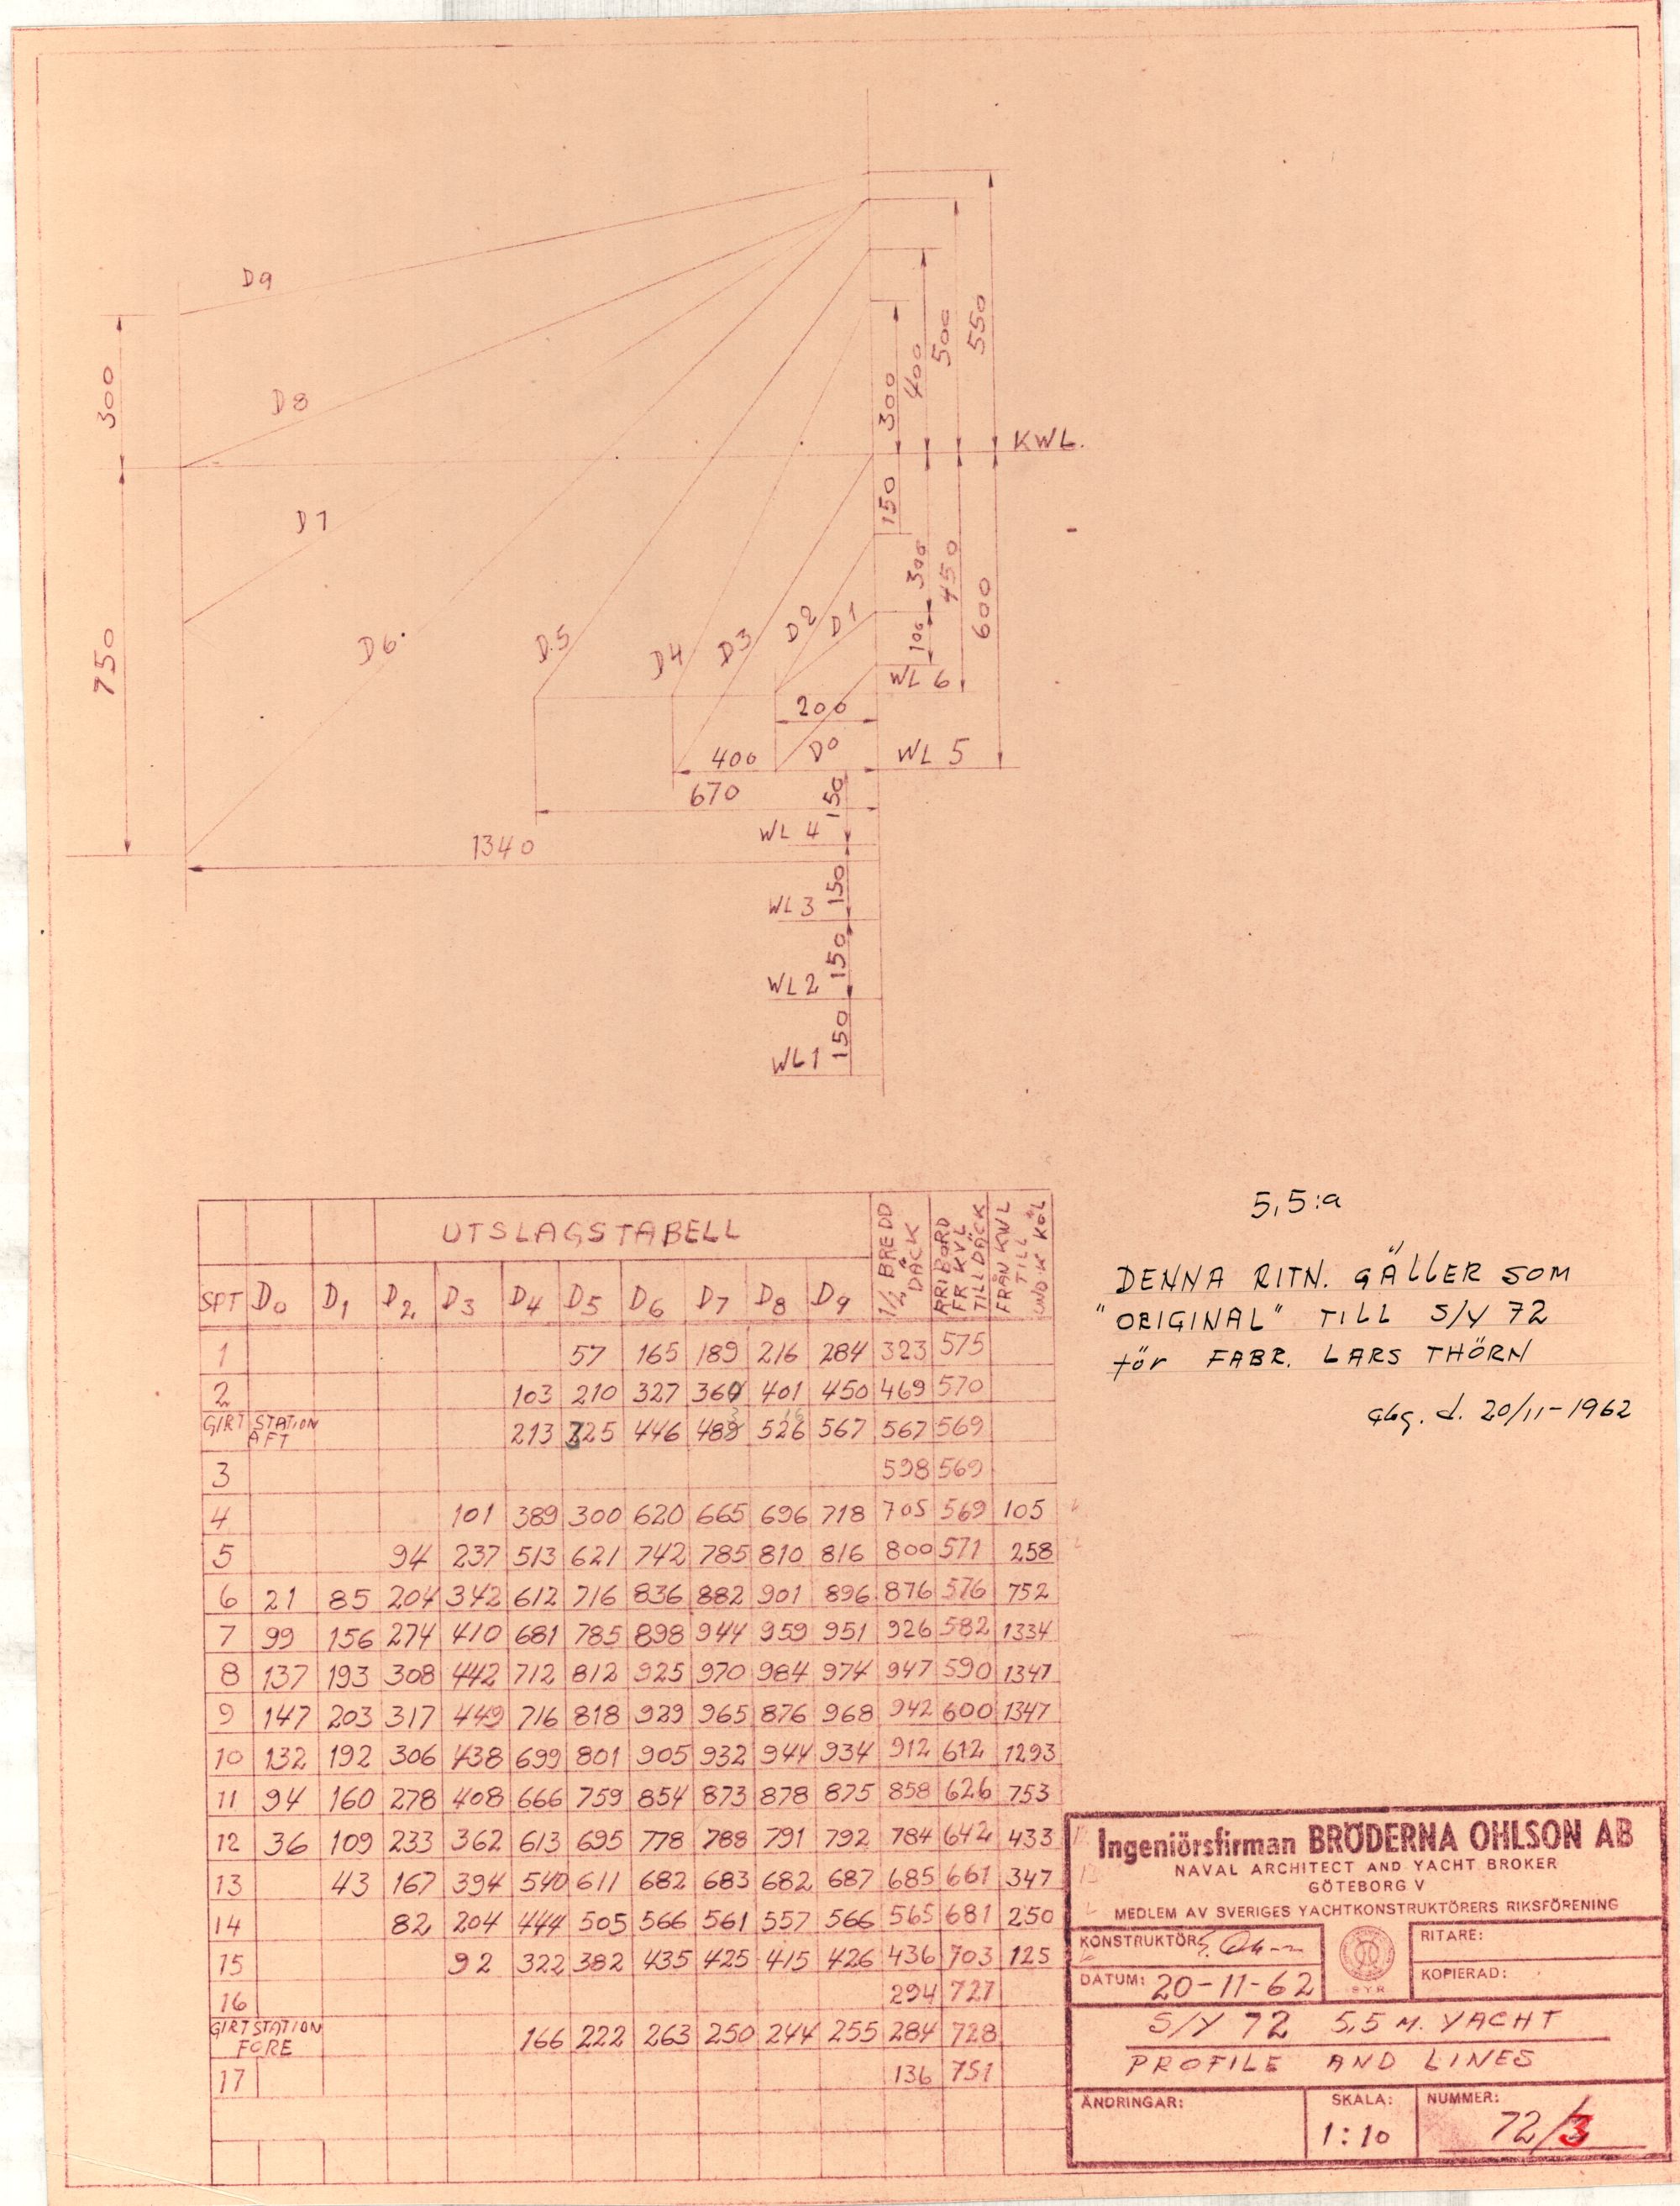 D9
300
D8
550
500
400
300
KWL.
D7
150
300
450
600
750
D6
D.5
D4
D3
D2
D1
100
WL 6
200
400
D0
WL 5
670
150
WL 4
1340
WL 3
150
WL 2
150
WL 1
150
UTSLAGSTABELL
1/2 BREDD DÄCK
FRIBORD FR KVL TILL DÄCK
FRÅN KWL TILL UND.K KÖL
SPT D0 D1 D2 D3 D4 D5 D6 D7 D8 D9
1 57 165 189 216 284 323 575
2 103 210 327 360 401 450 469 570
GIRT STATION AFT 213 325 446 488 526 567 567 569
3 598 569
4 101 389 300 620 665 696 718 705 569 105
5 94 237 513 621 742 785 810 816 800 571 258
6 21 85 204 342 612 716 836 882 901 896 876 576 752
7 99 156 274 410 681 785 898 944 959 951 926 582 1334
8 137 193 308 442 712 812 925 970 984 974 947 590 1347
9 147 203 317 449 716 818 929 965 876 968 942 600 1347
10 132 192 306 438 699 801 905 932 944 934 912 612 1293
11 94 160 278 408 666 759 854 873 878 875 858 626 753
12 36 109 233 362 613 695 778 788 791 792 784 642 433
13 43 167 394 540 611 682 683 682 687 685 661 347
14 82 204 444 505 566 561 557 566 565 681 250
15 92 322 382 435 425 415 426 436 703 125
16 294 727
GIRT STATION FORE 166 222 263 250 244 255 284 728
17 136 751
5,5:a
DENNA RITN. GÄLLER SOM
"ORIGINAL" TILL S/Y 72
för FABR. LARS THÖRN
Gbg. d. 20/11-1962
Ingeniörsfirman BRÖDERNA OHLSON AB
NAVAL ARCHITECT AND YACHT BROKER
GÖTEBORG V
MEDLEM AV SVERIGES YACHTKONSTRUKTÖRERS RIKSFÖRENING
KONSTRUKTÖR:
RITARE:
DATUM: 20-11-62
SYR
KOPIERAD:
S/Y 72 5,5 M. YACHT
PROFILE AND LINES
ÄNDRINGAR:
SKALA:
1:10
NUMMER:
72/3